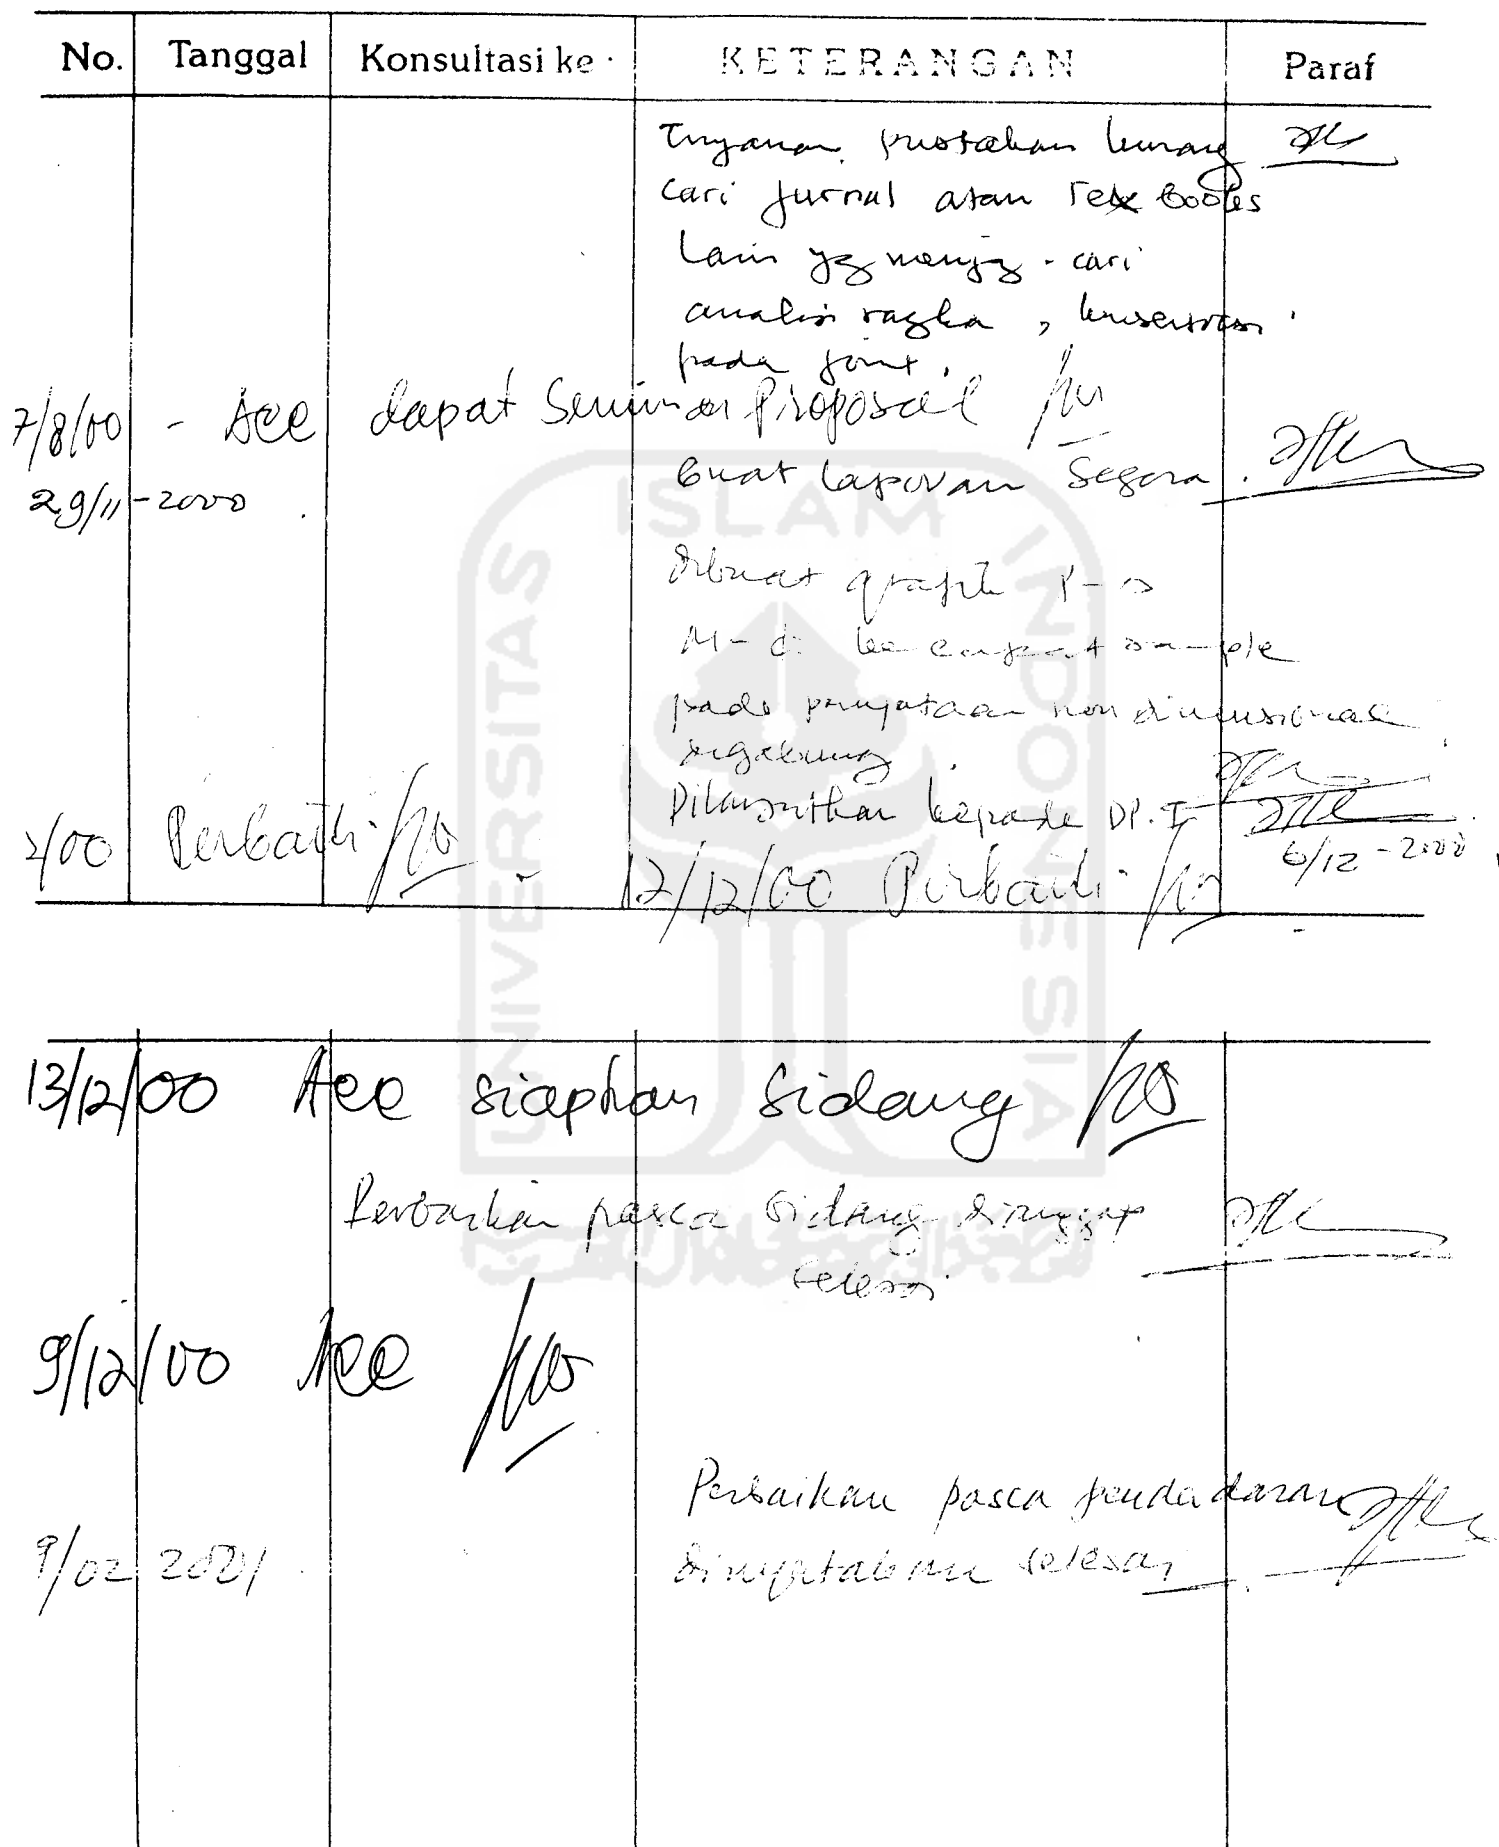 No. Tanggal Konsultasi ke KETERANGAN Paraf
Tinjauan pustakan kurang
cari jurnal atau Tex Books
Lain yg - cari
analisis rangka,
pada joint.
7/8/00 - Acc dapat Seminar Proposal
29/11-2000 Buat laporan Segera.
dibuat grafik P-
M-
pada pernyataan non dimensional
digabung
Dilanjutkan kepada DP. I
/00 Perbaiki 12/12/00 Perbaiki 6/12-2000
UNIVERSITAS ISLAM INDONESIA
13/12/00 Acc siapkan Sidang
Perbaikan pasca Sidang dianggap
selesai
9/12/00 Acc
Perbaikan pasca pendadaran
9/02 2001 dinyatakan selesai